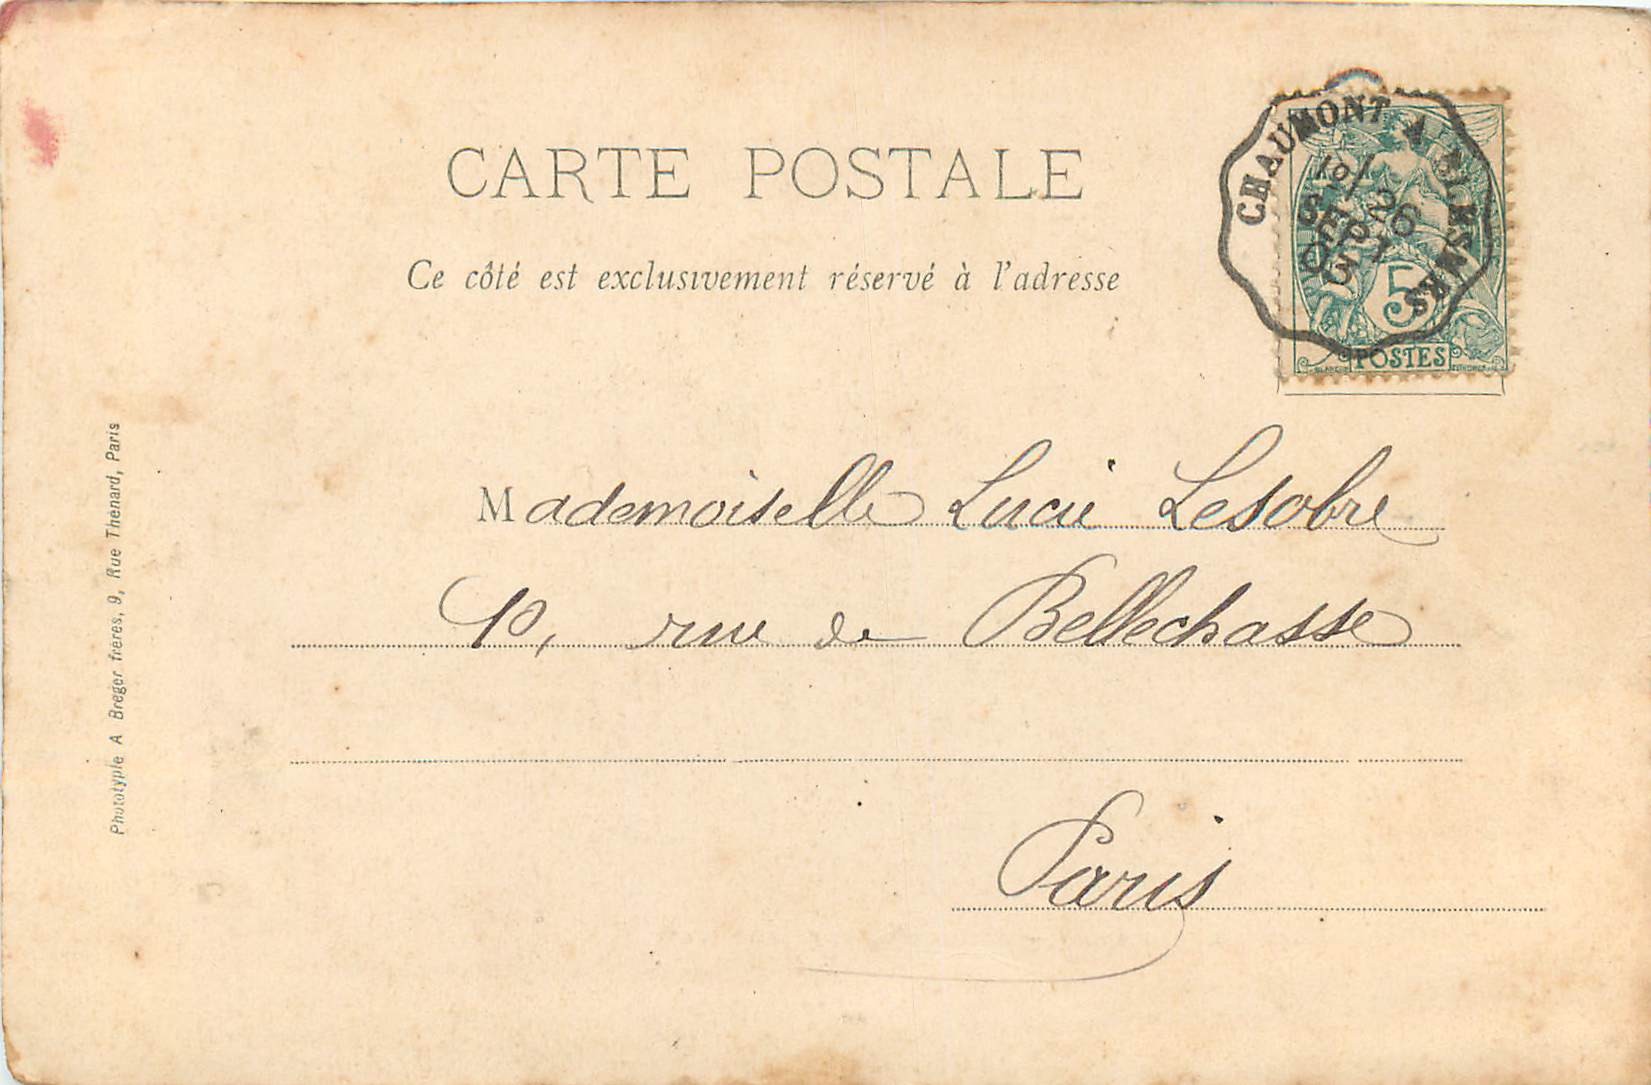 CARTE POSTALE
Ce côté est exclusivement réservé à l'adresse
CHAUMONT A
26
SEPT
03
5
POSTES
Mademoiselle Lucie Lesobre
rue de Bellechasse
Paris
Phototypie A Breger frères, 9, Rue Thénard, Paris